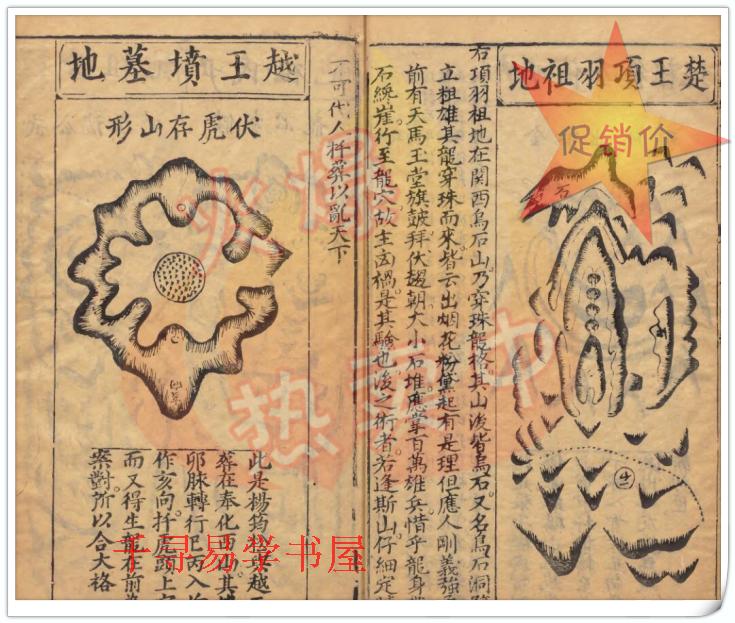 楚王項羽祖地
右項羽祖地在関西烏石山乃穿珠龍格其山後皆烏石又名烏石洞
立祖雄其龍穿珠而來皆云出烟花粉黛起有是理但應人剛義強
前有天馬玉堂旗皷拜伏趨朝大小石堆應掌百萬雄兵惜乎龍身
石巉崖行至龍穴故主凶禍是其驗也後之術者若逢斯山仔細定
不可代人扦葬以亂天下
越王墳墓地
伏虎存山形
此是楊筠松與越王
塟在奉化西山其
卯脉轉行巳丙入
作亥向扦虎頭上
而又得生龍在前
案對所以合大格
促销价
火爆
热卖中
千寻易学书屋